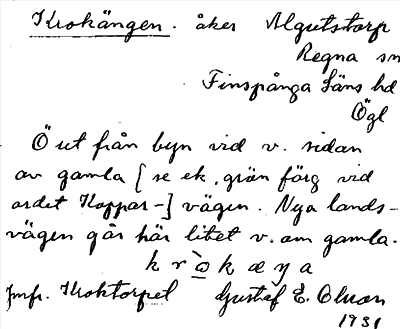 Krokängen. åker Algutstorp
Regna sn
Finspånga Läns hd
Ögl
Ö ut från byn vid v. sidan
av gamla [se ek. grön färg vid
ordet Koppar-] vägen. Nya lands-
vägen går här litet v. om gamla.
kròkæŋa
Jmfr. Kroktorpet Gustaf E. Olsson
1931